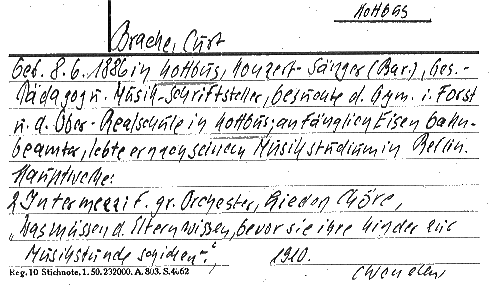 Kottbus
Brache, Curt
Geb. 8.6.1886 in Kottbus, Konzert-Sänger (Bar.), Ges.-
Pädagog u. Musik-Schriftsteller, besuchte d. Gym. i. Forst
u. d. Ober-Realschule in Kottbus; anfänglich Eisenbahn-
beamter, lebte er nach seinem Musikstudium in Berlin.
Hauptwerke:
2 Intermezzi f. gr. Orchester, Lieder, Chöre,
„Was müssen d. Eltern wissen, bevor sie ihre Kinder zur
Musikstunde schicken-“, 1910.
Reg. 10 Stichnote. 1. 50. 232000. A. 803. S. 4. 62